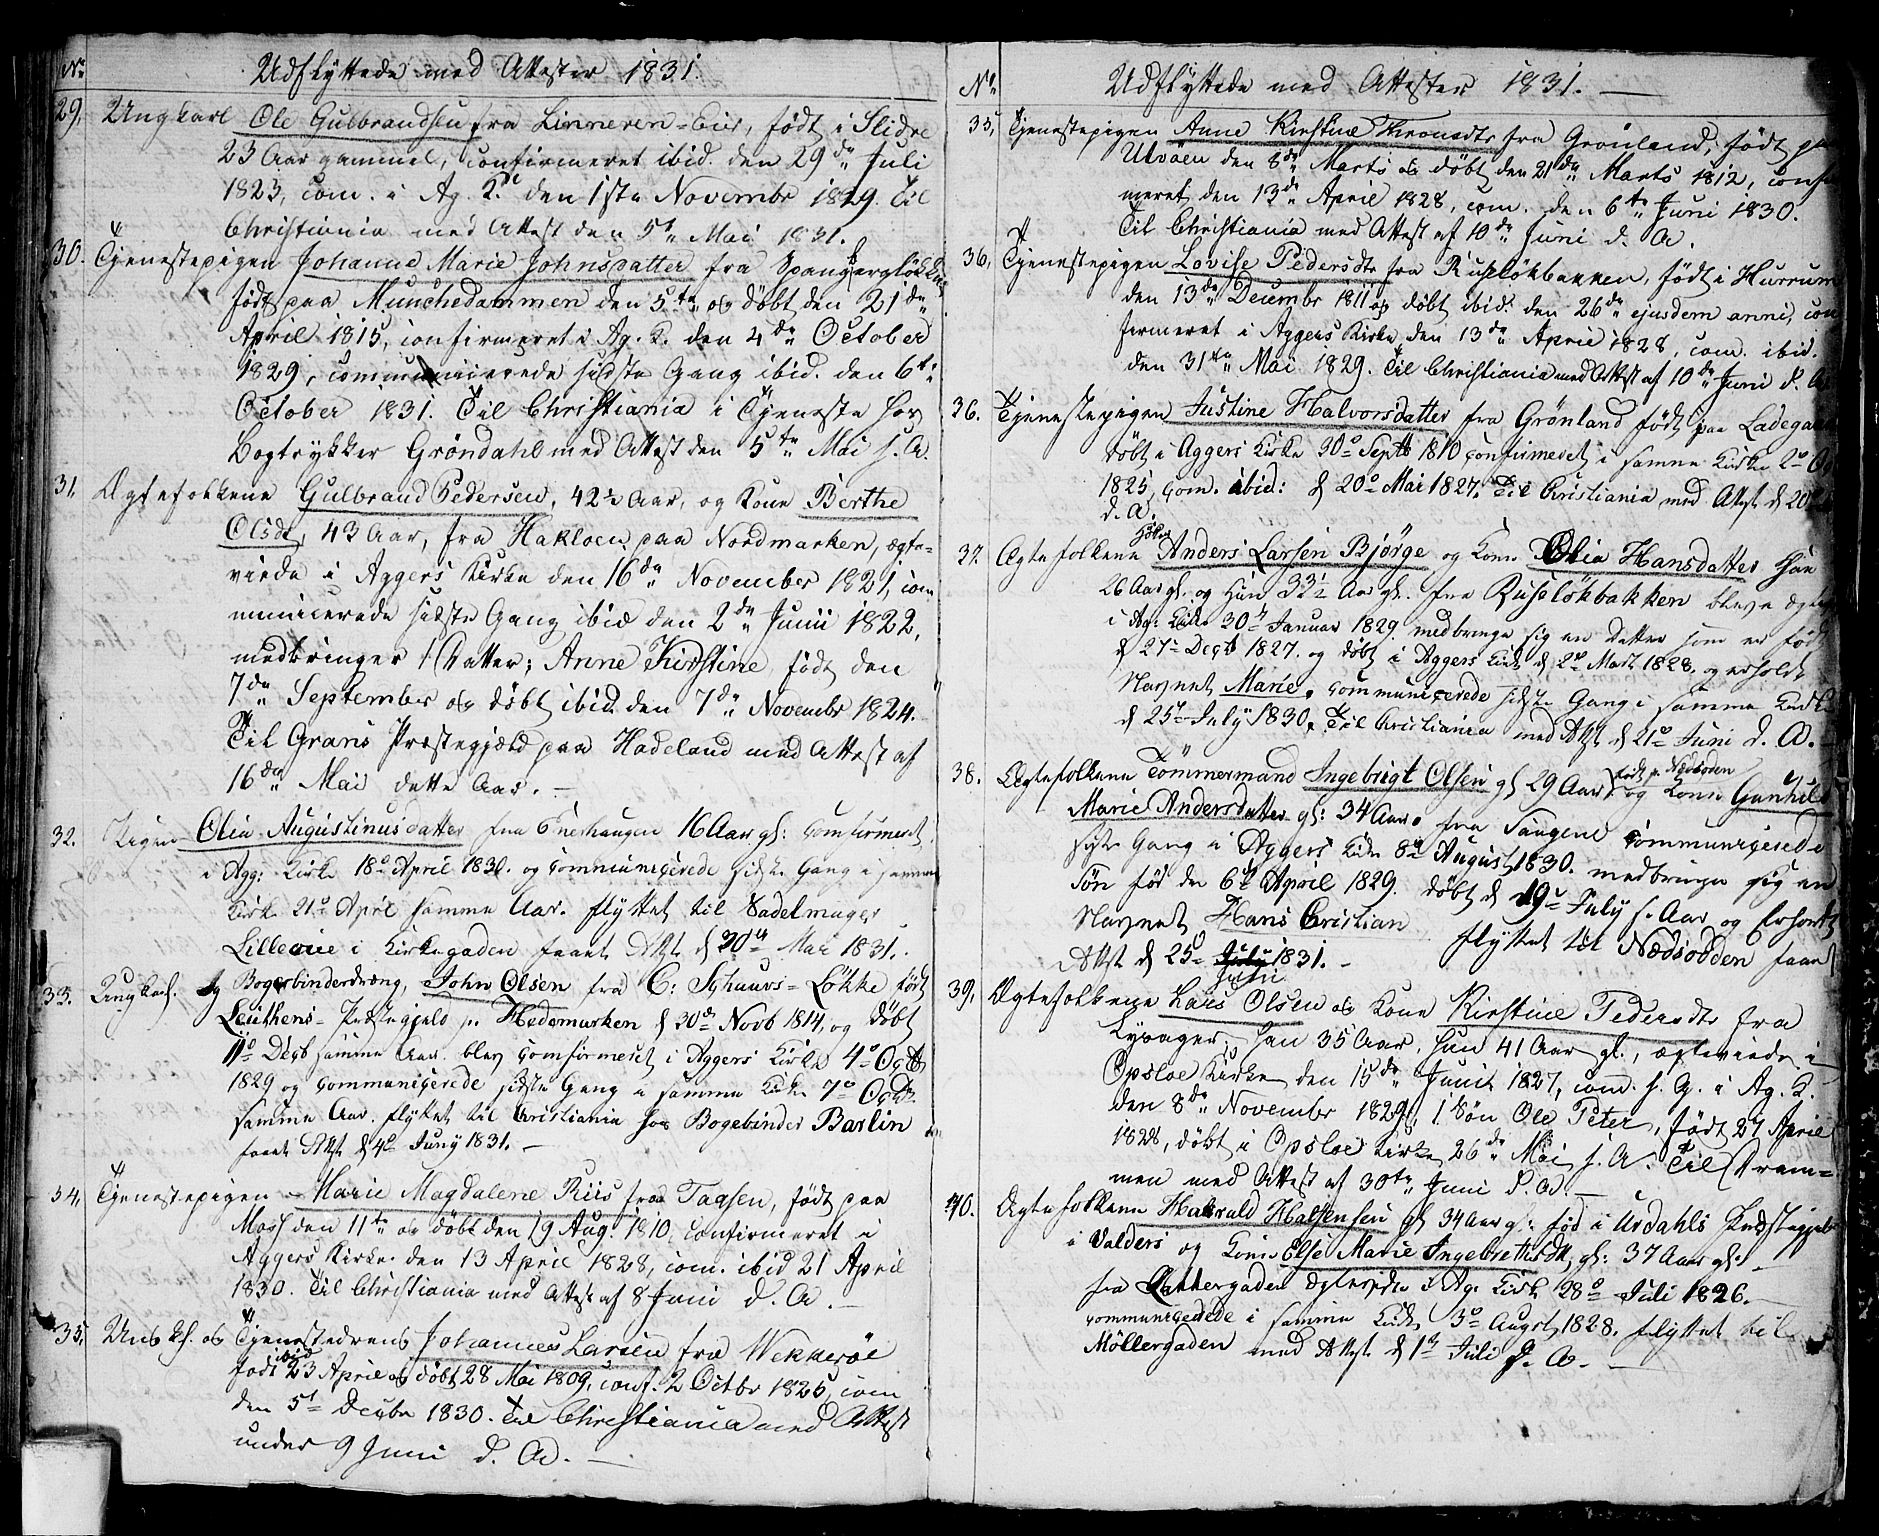 No Udflyttede med Attester 1831.
29. Ungkarl Ole Gulbrandsen fra Linneren-Eier, født i Slidre
23 Aar gammel, confirmeret ibid. den 29de Juli
1823, com. i Ag. K. den 1ste Novembr 1829. Til
Christiania med Attest den 5te Mai 1831.
30. Tjenestepigen Johanne Marie Johnsdatter fra Spangbergløkken
født paa Munchedammen den 5te og døbt den 21de
April 1815, confirmeret i Ag. K. den 4de October
1829, communicerede sidste Gang ibid. den 6te
October 1831. Til Christiania i Tjeneste hos
Bogtrykker Grøndahl med Attest den 5te Mai s. A.
31. Ægtefolkene Gulbrand Pedersen, 42½ Aar, og Kone Berthe
Olsdt, 43 Aar, fra Hakloen paa Nordmarken, ægte-
viede i Aggers Kirke den 16de November 1821, com
municerede sidste Gang ibid den 2de Junii 1822,
medbringer 1 Datter; Anne Kirstine født den
7de September og døbt ibid. den 7de Novembr 1824.
Til Grans Præstegjæld paa Hadeland med Attest af
16de Mai dette Aar. —
32. Pigen Olia Augustinusdatter fra Enerhaugen 16 Aar gl: Comfirmeret
i Agg: Kirke 18de April 1830. og Communicerede sidste Gang i samme
Kirke 21de April samme Aar. flyttet til Sadelmager
Lillevie i Kirkegaden faaet Attst d 30te Mai 1831.
33. Ungkarl. og Bogebinderdræng, John Olsen fra C: Schuuvs-Løkke født
Leuthens-Præstegjeld p. Hedemarken d 30de Novb 1814, og døbt
11de Decb samme Aar. blev Comfirmeret i Aggers Kirke 4de Octb
1829 og Communicerede sidste Gang i samme Kirke 7de Octbr
samme Aar. flyttet til Christiania hos Bogebinder Barlin
faaet Attst d 4de Juny 1831. —
34. Tjenestepigen Marie Magdalene Riis fra Taasen, født paa
Moss den 11te og døbt den 19 Aug. 1810, confirmeret i
Aggers Kirke den 13 April 1828, com. ibid 21 April
1830. Til Christiania med Attest af 8 Juni d. A. —
35. Ungk. og Tjenestedreng Johannes Larsen fra Wækkerøe
født ibid 23 April og døbt 28 Mai 1809, conf. 2 Octbr 1825, com
den 5te Decbr 1830. Til Christiania med Attest
under 9 Juni d. A. —
No Udflyttede med Attester 1831. —
35. Tjenestepigen Anne Kirstine Aronsdtr fra Grønland, født paa
Ulvøen den 8de Marts og døbt den 21de Marts 1812, confir
meret den 13de April 1828, com. den 6te Juni 1830.
Til Christiania med Attest af 10de Juni d. A.
36. Tjenestepigen Lovise Pedersdtr fra Ruseløkbakken, født i Hurrum
den 13de Decembr 1811 og døbt ibid. den 26de ejusdem anni, con
firmeret i Aggers Kirke den 13de April 1828, com. ibid.
den 31te Mai 1829. Til Christiania med Attest af 10de Juni d. A.
36. Tjenestepigen Justine Halvorsdatter fra Grønland født paa Ladegaard
døbt i Aggers Kirke 30de Septb 1810 Confirmeret i samme Kirke 2de
1825, Com. ibid: d 20de Mai 1827. Til Christiania med Attst d 20
d. A.
37. Ægtefolkene Anders Larsen Bjørge og Kone Olia Hansdatter Han
26 Aar gl. og Hun 33½ Aar gl. fra Ruseløkbakken bleve ægtev
i Ag: Kirke 30te Januar 1829. medbringe sig en Datter som er født
d 27de Decb 1827. og døbt i Aggers Kirke d 2de Marts 1828. og erholdt
Navnet Marie. Communicerede sidste Gang i samme Kirke
d 25de July 1830. Til Christiania med Attst d 21de Juni d. A. —
38. Ægtefolkene Tømmermand Ingebrigt Olsen gl 29 Aar født p. Nædsoden og Kone Gunhild
Marie Andersdatter gl: 34 Aar. fra Saugene Communicerede
sidste Gang i Aggers Kirke 8de August 1830. medbringe sig en
Søn fød den 6te April 1829. døbt d 19de July s. Aar og erholdt
Navnet Hans Christian flyttet til Nædsodden faaet
Attst d 25de Juni 1831. —
39. Ægtefolkene Lars Olsen og Kone Kirstine Pedersdtr fra
Lysager; han 35 Aar, hun 41 Aar gl., ægteviede i
Opsloe Kirke den 15de Junii 1827, com. s. G. i Ag. K.
den 8de November 1829, 1 Søn Ole Peter, født 27 April
1828, døbt i Opsloe Kirke 26de Mai s. A. Til Dram-
men med Attest af 30te Juni d. A. —
40. Ægtefolkene Halvald Halsensen gl 34 Aar gl: fød i Urdahls Præstegjeld
i Valders og Kone Else Marie Ingebrethsdtr gl: 37 Aar gl: —
fra Rattergaden Ægteviede i Ag. Kirk. 28de Juli 1826. —
Communicerede i samme Kirke 3de Augst 1828. flyttet til
Møllergaden med Attst d 1te Juli d. A. —